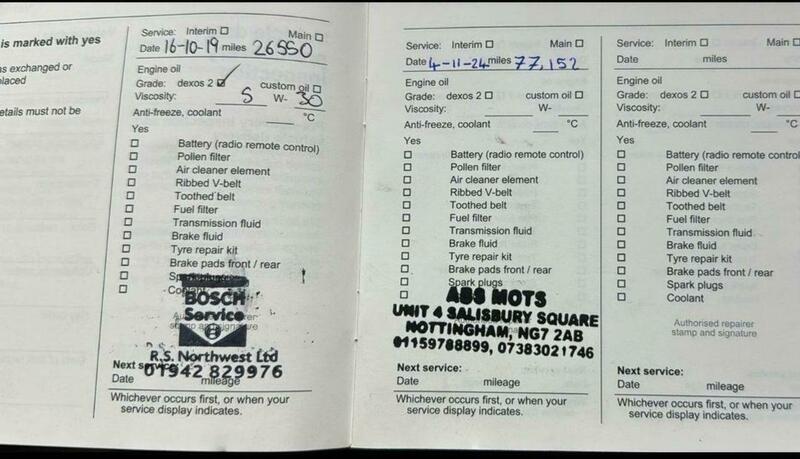 is marked with yes
s exchanged or
laced
etails must not be
Service: Interim □ Main □
Date 16-10-19 miles 26550
Engine oil
Grade: dexos 2 ☑ custom oil □
Viscosity: 5 W- 30
Anti-freeze, coolant °C
Yes
□ Battery (radio remote control)
□ Pollen filter
□ Air cleaner element
□ Ribbed V-belt
□ Toothed belt
□ Fuel filter
□ Transmission fluid
□ Brake fluid
□ Tyre repair kit
□ Brake pads front / rear
□
□
BOSCH
Service
stamp and signature
R.S. Northwest Ltd
01942 829976
Next service:
Date mileage
Whichever occurs first, or when your
service display indicates.
Service: Interim □ Main □
Date 4-11-24 miles 77,152
Engine oil
Grade: dexos 2 □ custom oil □
Viscosity: W-
Anti-freeze, coolant °C
Yes
□ Battery (radio remote control)
□ Pollen filter
□ Air cleaner element
□ Ribbed V-belt
□ Toothed belt
□ Fuel filter
□ Transmission fluid
□ Brake fluid
□ Tyre repair kit
□ Brake pads front / rear
□ Spark plugs
□
ABS MOTS
UNIT 4 SALISBURY SQUARE
NOTTINGHAM, NG7 2AB
01159788899, 07383021746
Next service:
Date mileage
Whichever occurs first, or when your
service display indicates.
Service: Interim □ Main □
Date miles
Engine oil
Grade: dexos 2 □ custom oil □
Viscosity: W-
Anti-freeze, coolant °C
Yes
□ Battery (radio remote control)
□ Pollen filter
□ Air cleaner element
□ Ribbed V-belt
□ Toothed belt
□ Fuel filter
□ Transmission fluid
□ Brake fluid
□ Tyre repair kit
□ Brake pads front / rear
□ Spark plugs
□ Coolant
Authorised repairer
stamp and signature
Next service:
Date mileage
Whichever occurs first, or when your
service display indicates.